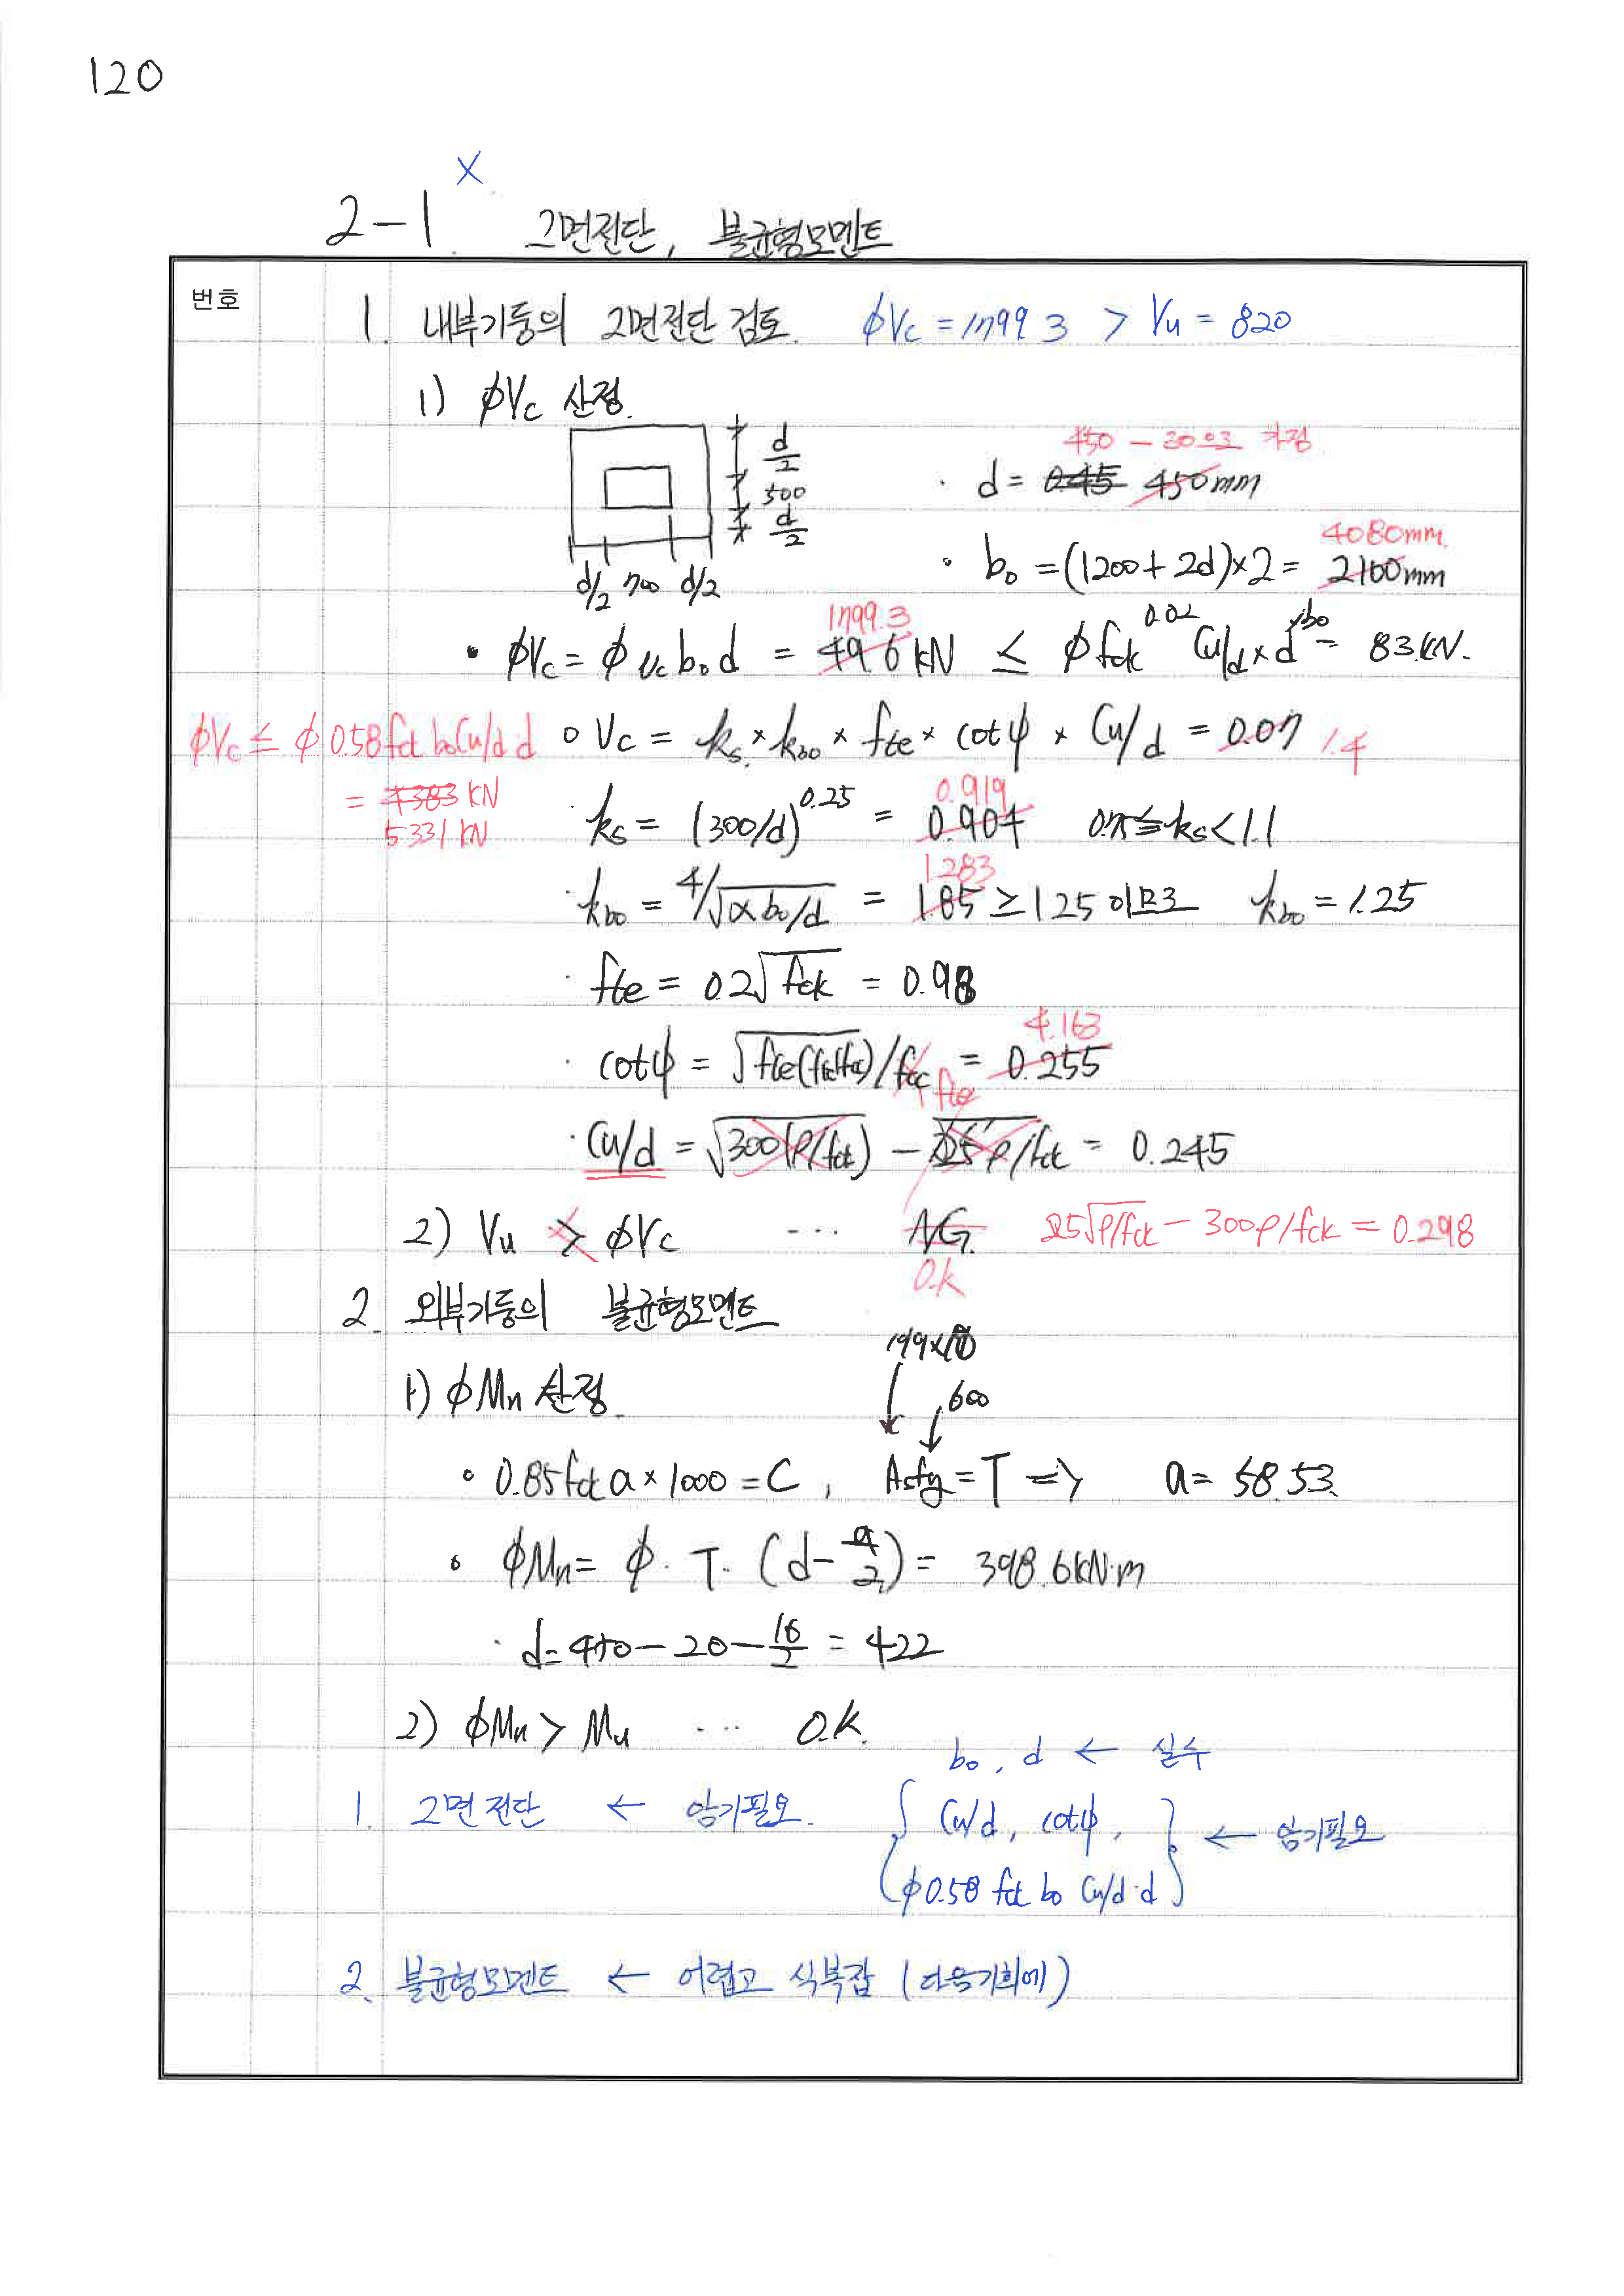 120
X
2-1. 2면전단, 불균형모멘트
번호
1. 내부기둥의 2면전단 검토. ϕVc = 1799.3 > Vu = 820
1) ϕVc 산정.
d/2
500
d/2
d/2 700 d/2
450 - 30으로 가정
· d = 0.45 450mm
4080mm
· bo = (1200+2d)×2 = 2100mm
1799.3
· ϕVc = ϕ vc bo d = 49.6 kN ≤ ϕ fck^0.02 Cu/d × d × bo = 83 kN.
ϕVc ≤ ϕ 0.58 fck bo Cu/d d
= 4383 kN
5331 kN
∘ Vc = ks × kbo × fte × cotψ × Cu/d = 0.07 1.4
0.919
· ks = (300/d)^0.25 = 0.904 0.75 ≤ ks < 1.1
1.283
· kbo = 4/√(α bo/d) = 1.85 ≥ 1.25 이므로 kbo = 1.25
· fte = 0.2√fck = 0.98
4.163
· cotψ = √(fte(fte+fcc)) / fcc = 0.255
fte
· Cu/d = √(300(ρ/fck)) - 25 ρ/fck = 0.245
2) Vu > ϕVc ··· N.G. 25√(ρ/fck) - 300ρ/fck = 0.298
O.K
2. 외부기둥의 불균형모멘트
199×10
1) ϕMn 산정.
600
∘ 0.85 fck a × 1000 = C, Asfy = T => a = 58.53.
∘ ϕMn = ϕ · T · (d - a/2) = 398.6 kN·m
· d = 450 - 20 - 16/2 = 422
2) ϕMn > Mu ··· O.K.
bo, d ← 실수
1. 2면전단 ← 암기필요. { Cu/d, cotψ, } ← 암기필요
ϕ0.58 fck bo Cu/d·d
2. 불균형모멘트 ← 어렵고 식복잡 (다음기회에)